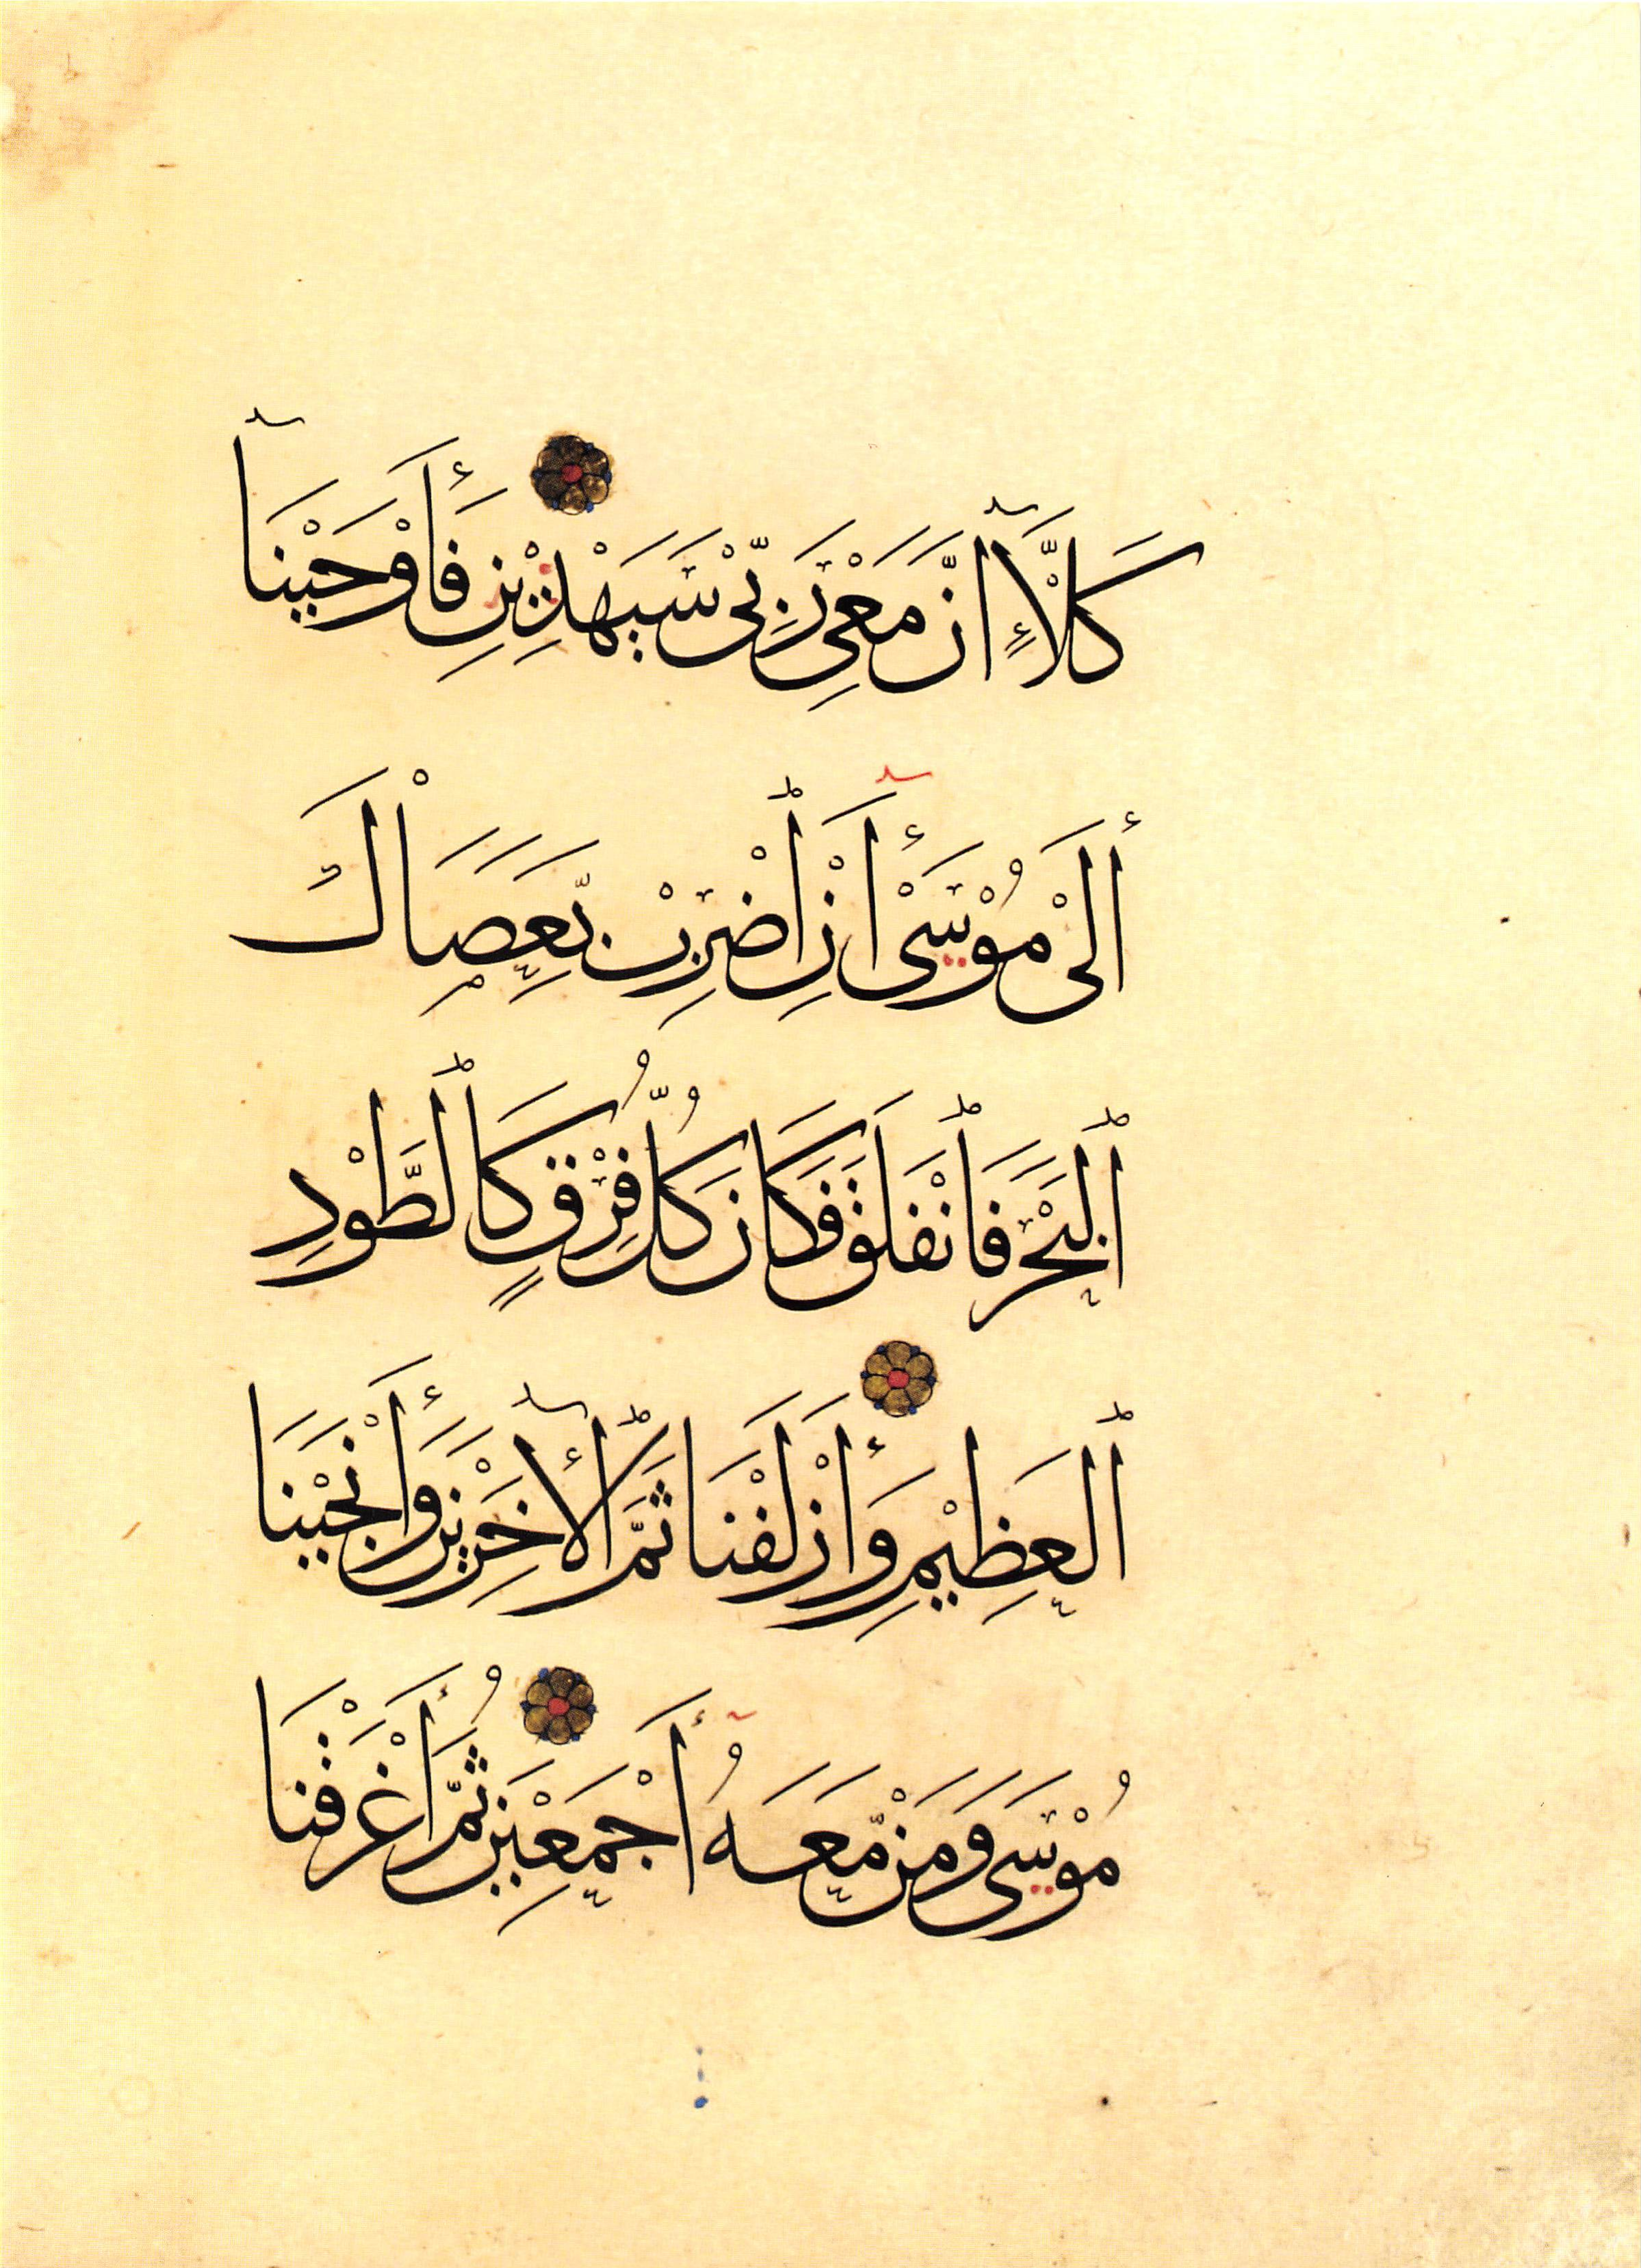 كَلَّآ إِنَّ مَعِيَ رَبِّيْ سَيَهْدِيْنِ فَأَوْحَيْنَآ
إِلَىْ مُوْسَىْٓ أَنِ ٱضْرِبْ بِّعَصَاْكَ
ٱلْبَحْرَ فَٱنْفَلَقَ فَكَانَ كُلُّ فِرْقٍ كَٱلطَّوْدِ
ٱلْعَظِيْمِ وَأَزْلَفْنَا ثَمَّ ٱلْأٓخَرِيْنَ وَأَنْجَيْنَا
مُوْسَى وَمَنْ مَّعَهُٓ أَجْمَعِيْنَ ثُمَّ أَغْرَقْنَا